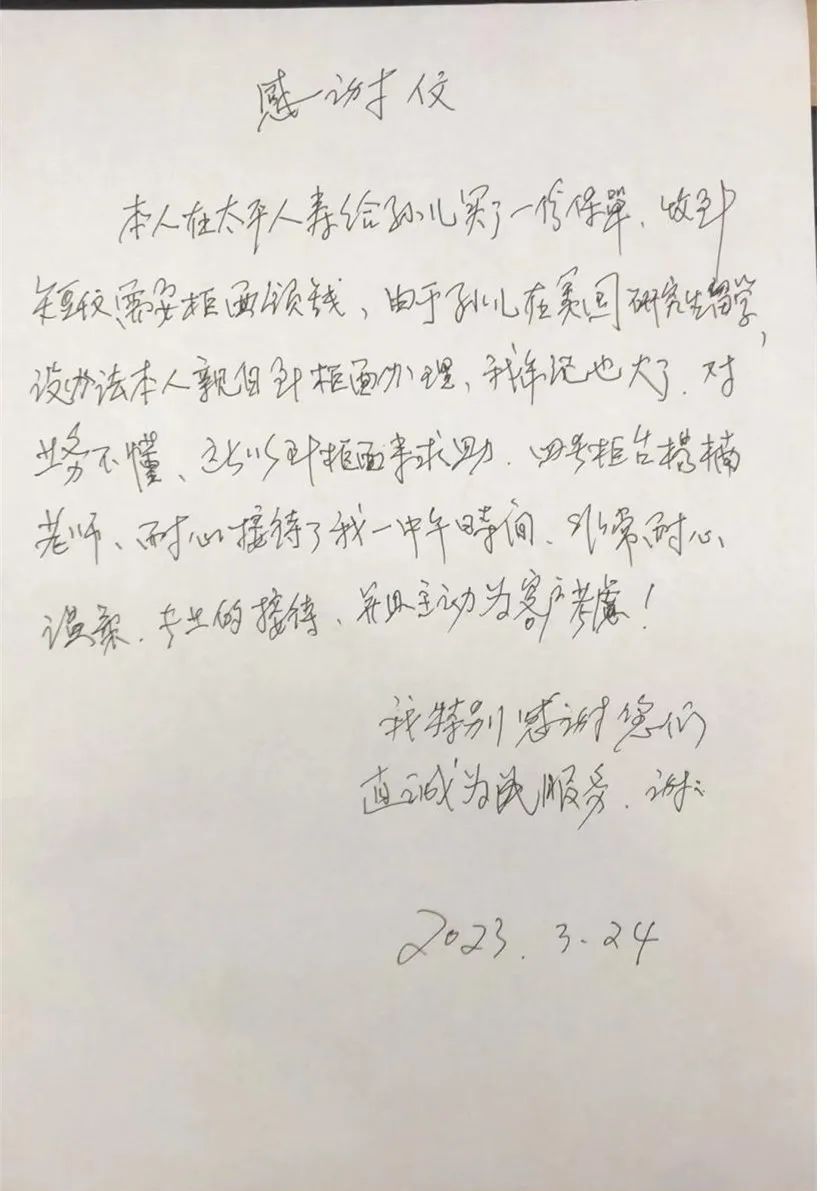 感谢信
本人在太平人寿给孙儿买了一份保單、收到
短信需要柜面领钱、由于孙儿在英国研究生留学,
没办法本人亲自到柜面办理、我年纪也大了.对
业务不懂、所以到柜面来求助.四号柜台楊楠
老师、耐心接待了我一中午時间、非常耐心、
温柔.专业的接待、并且主动为客户考慮!
我特别感谢您们
真诚为民服务.谢谢
2023.3.24